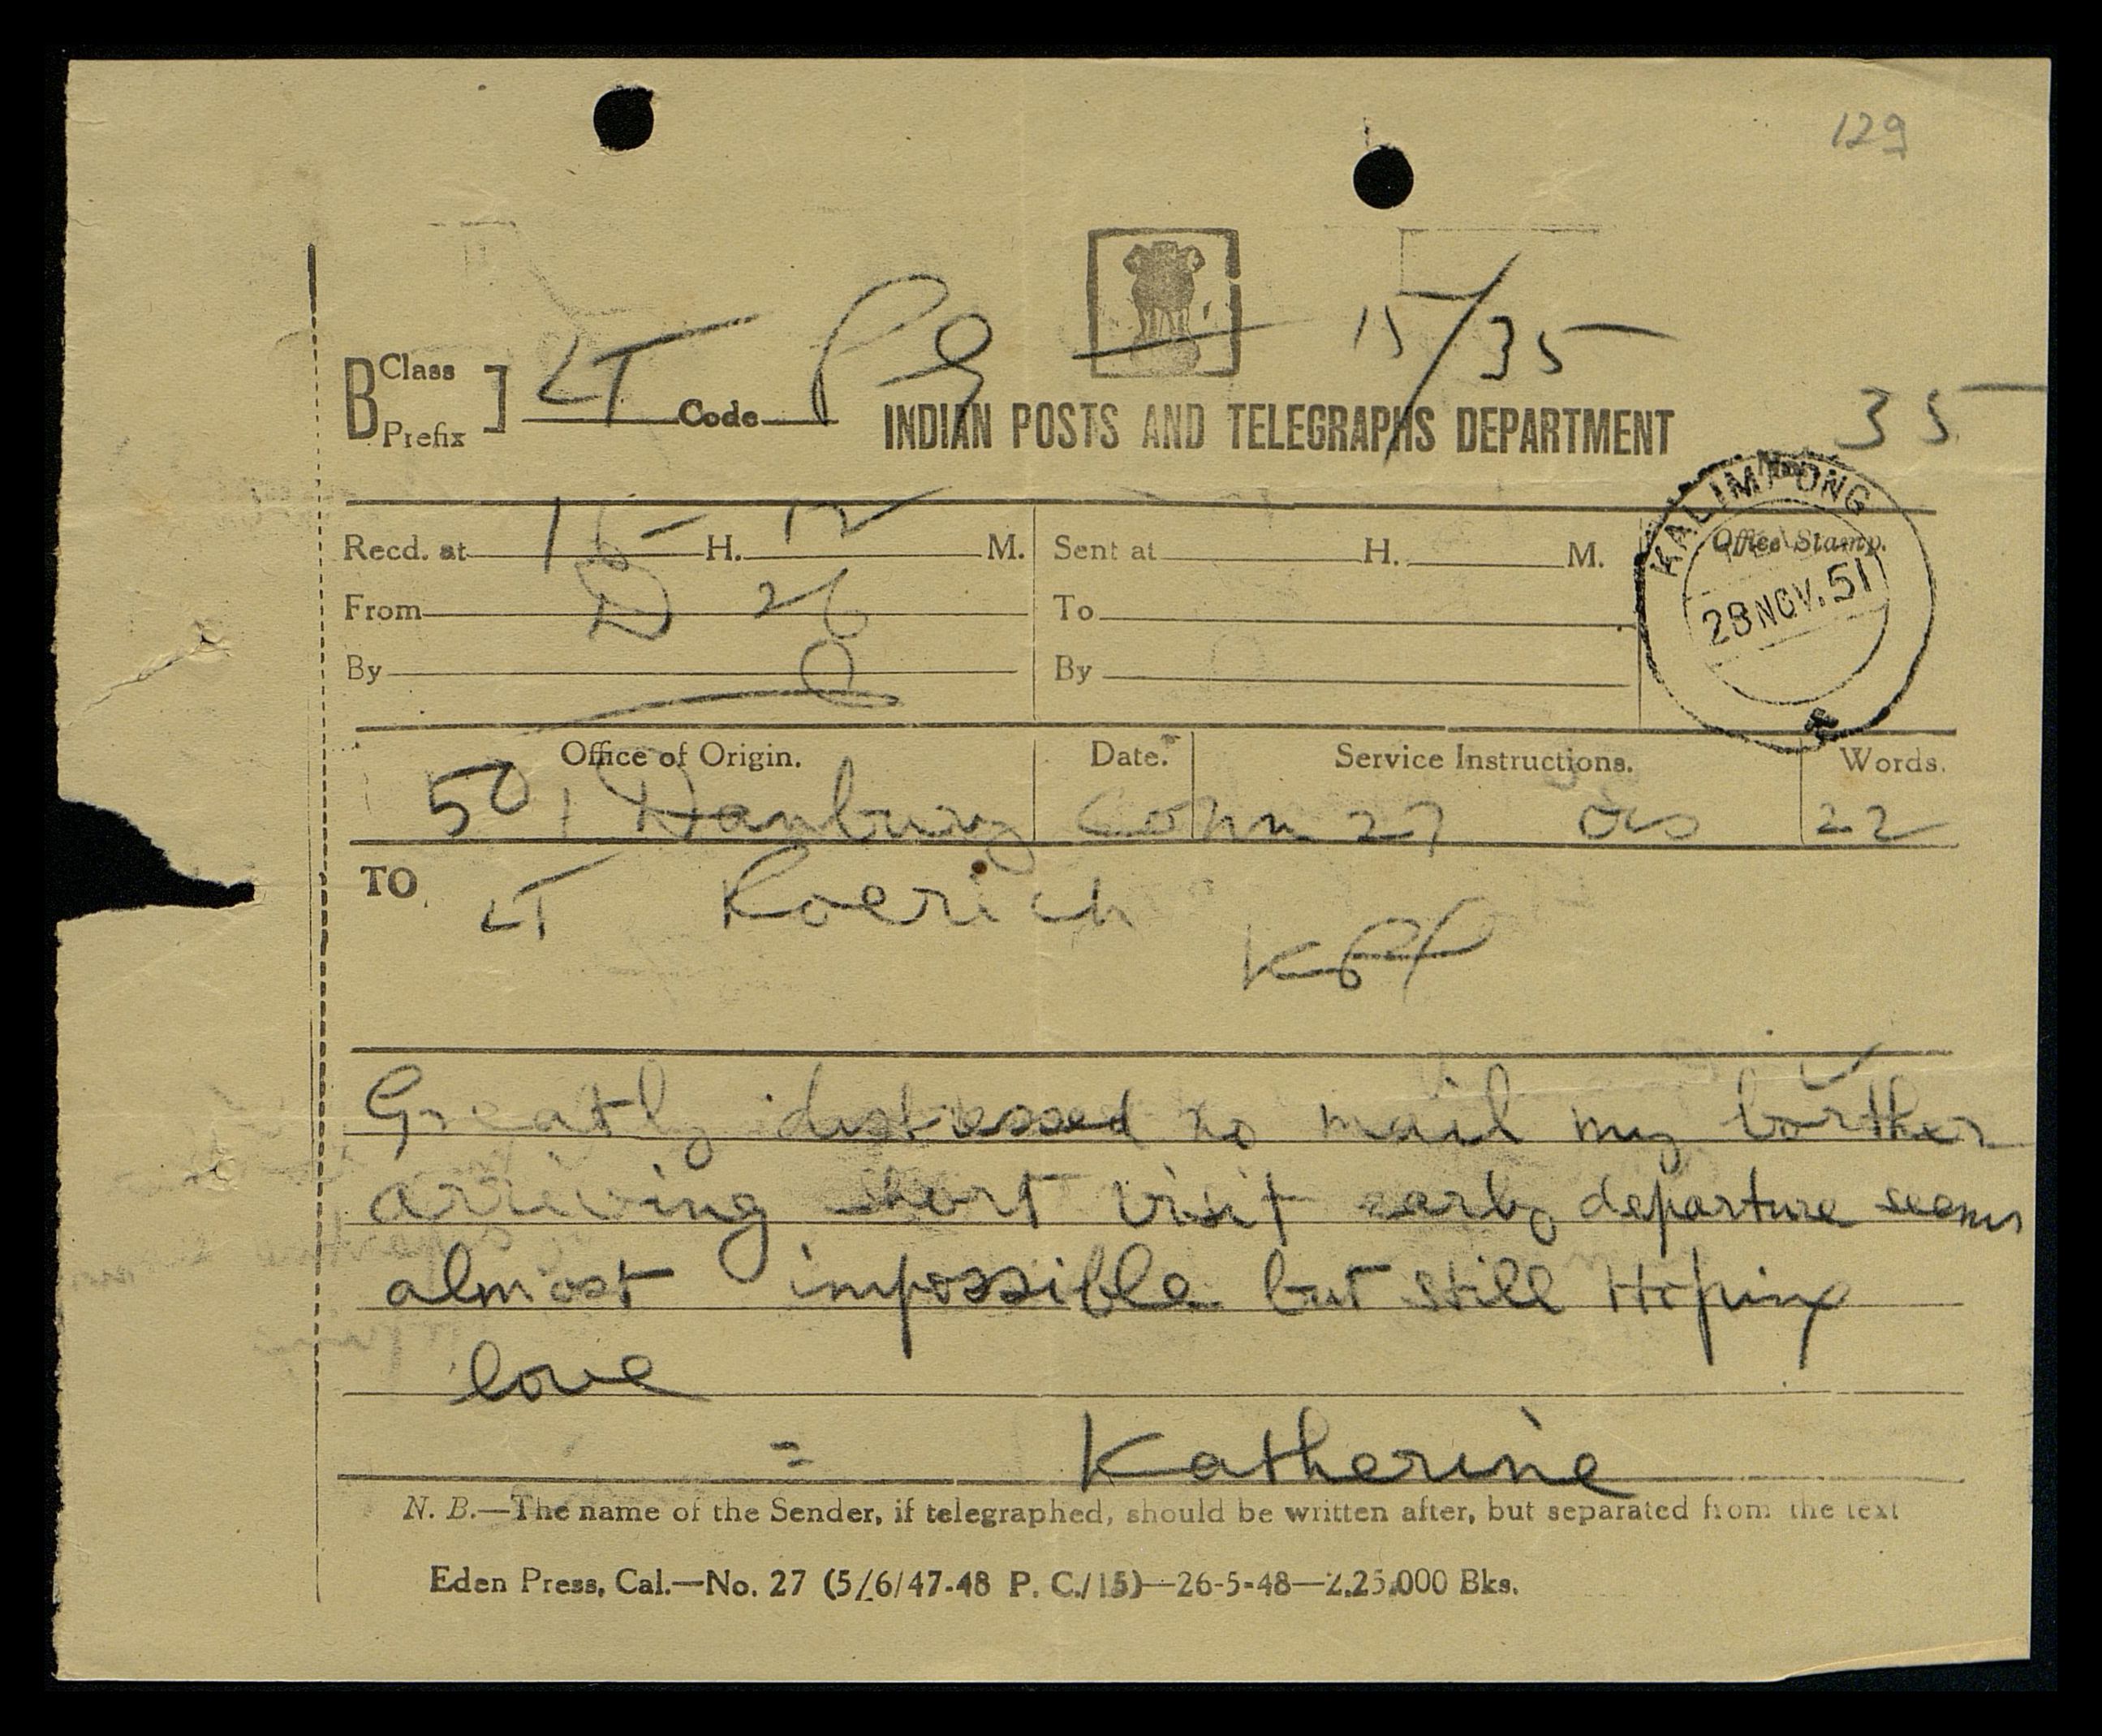 129
15/35
B Class Prefix ] LT Code
INDIAN POSTS AND TELEGRAPHS DEPARTMENT
35
KALIMPONG
28 NOV. 51
Recd. at 15 H. 12 M. Sent at H. M. Office Stamp.
From D 26 To
By By
Office of Origin. Date. Service Instructions. Words.
50 Danbury Conn 27 22
TO LT Roerich
KPP
Greatly distressed no mail my borther
arrieving short visit early departure seems
almost impossible but still Hoping
love
= Katherine
N. B.—The name of the Sender, if telegraphed, should be written after, but separated from the text
Eden Press, Cal.—No. 27 (5/6/47-48 P. C./15)—26-5-48—2,25,000 Bks.